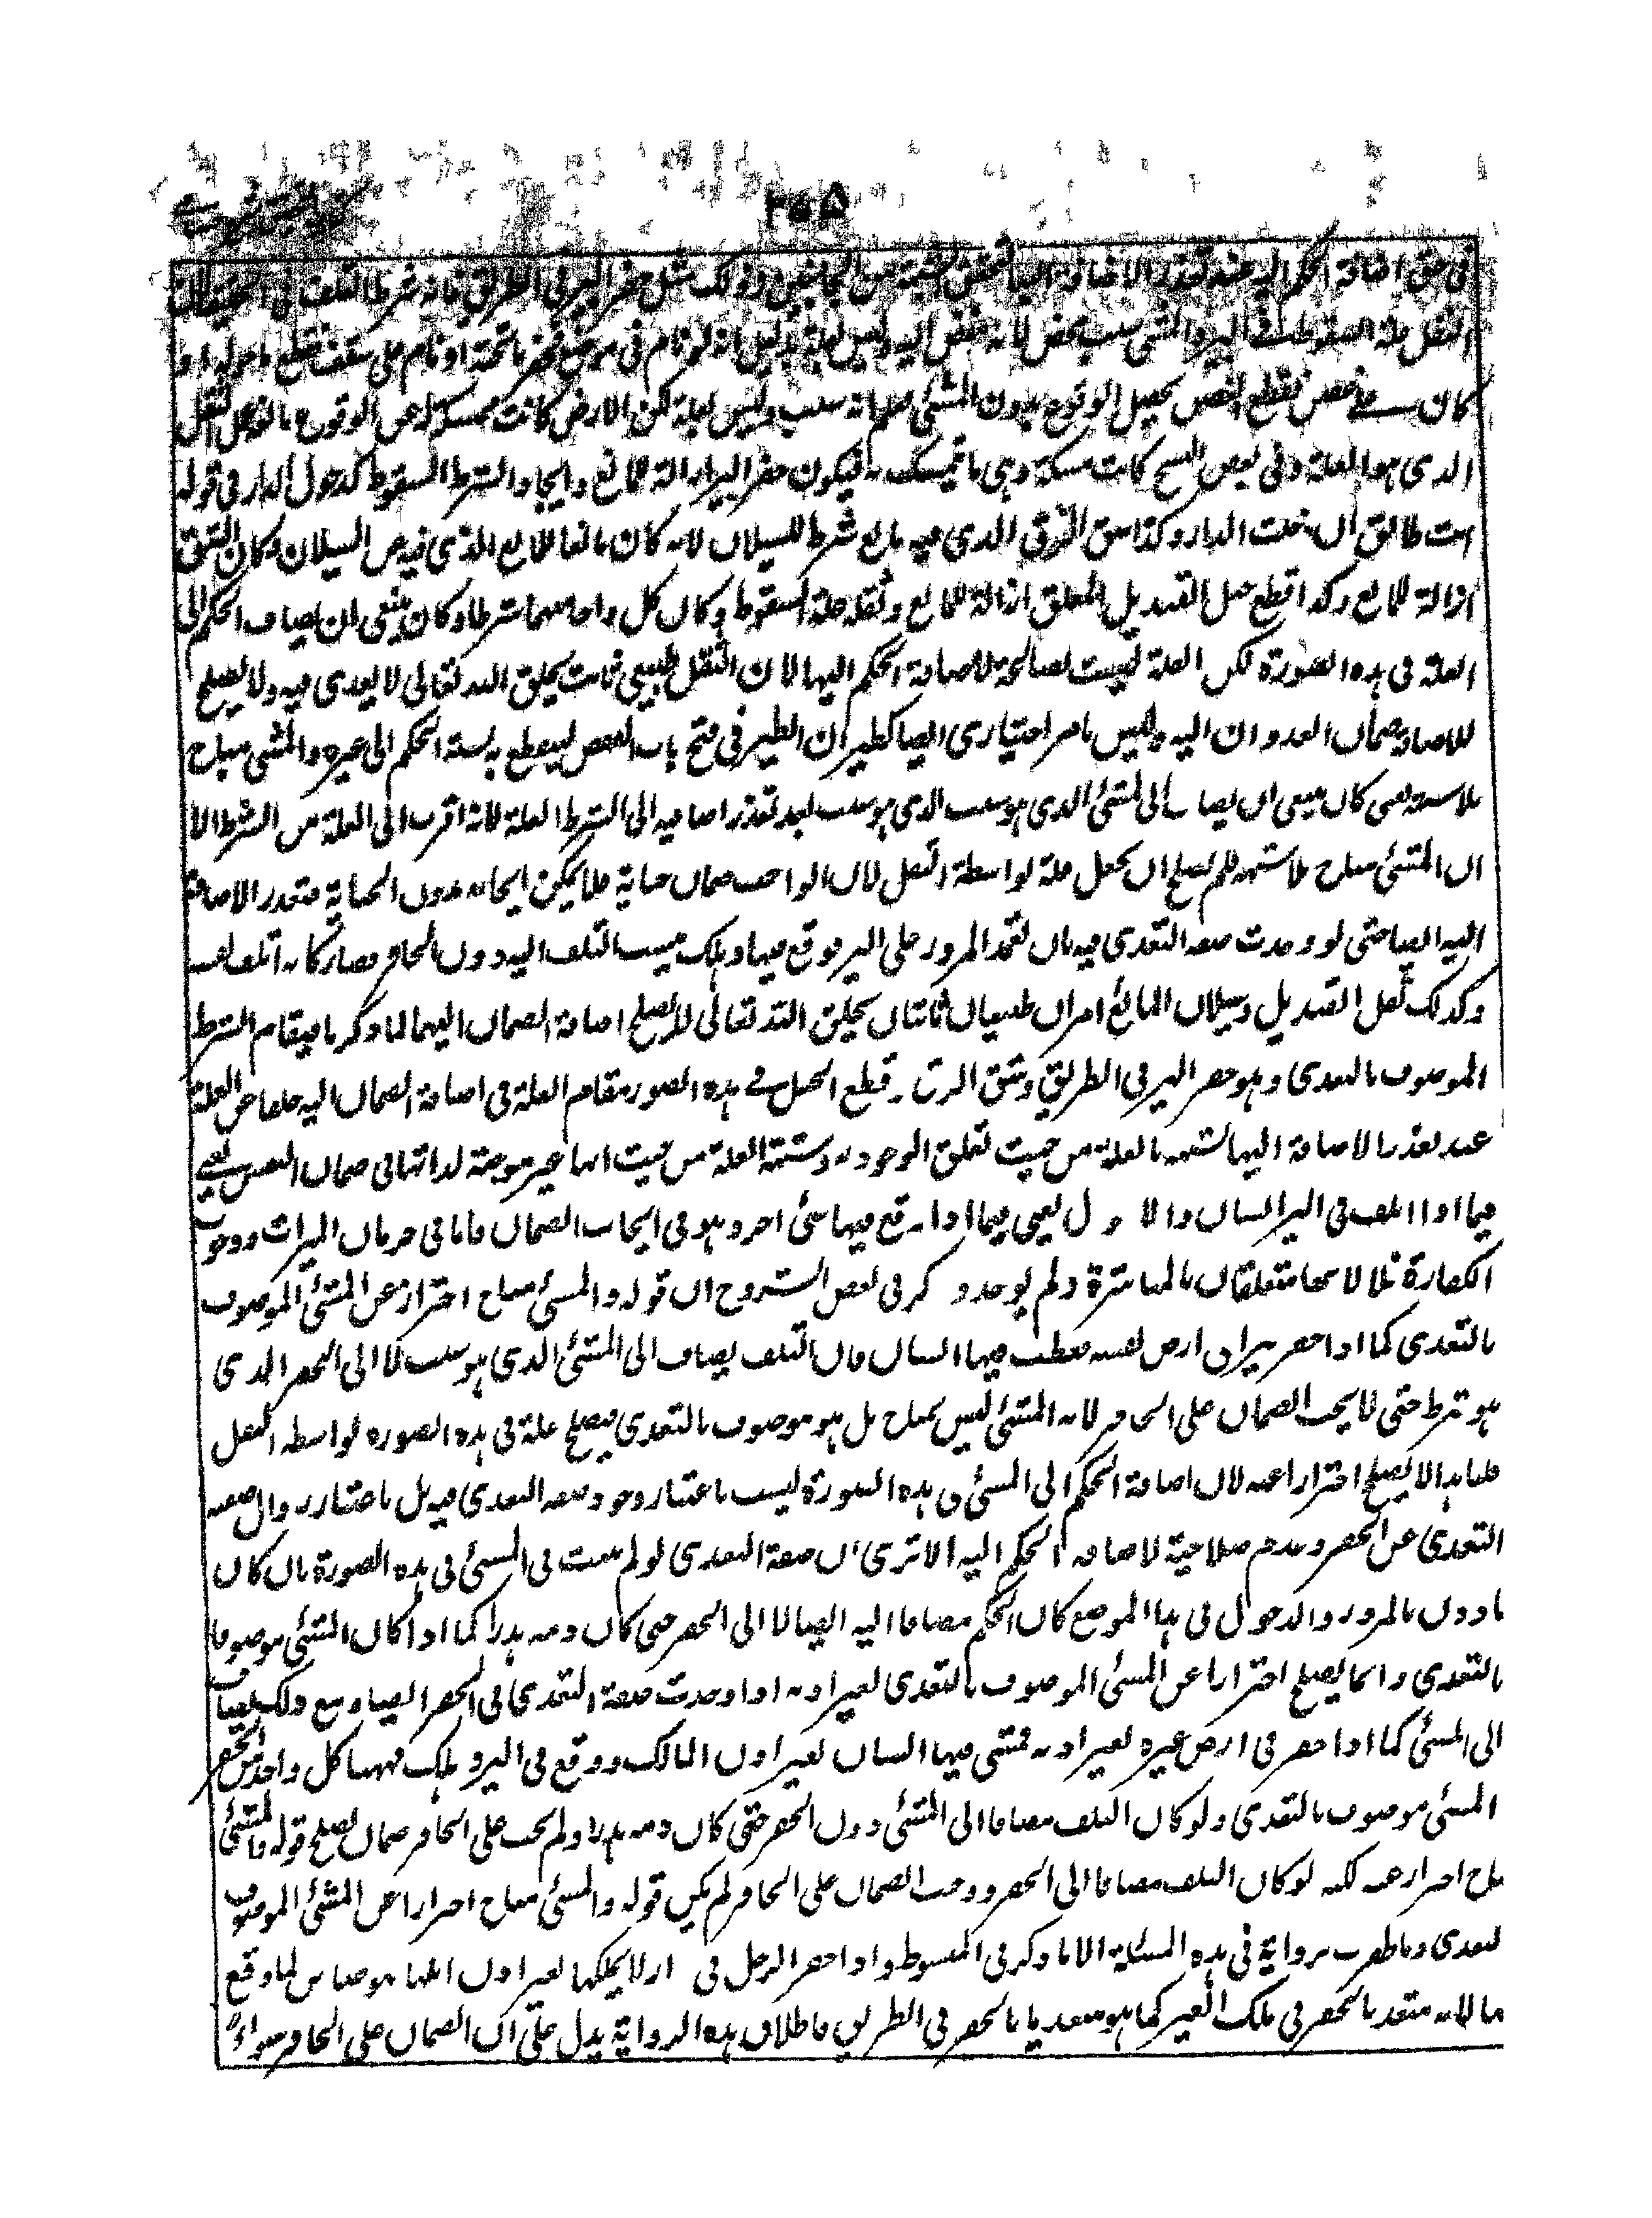 ٢٠٥
فى حق اضافة الحكم اليه عند تعذر الاضافة اليها لتحقق الشبه من الجانبين وذلك مثل حفر البير فى الطريق فانه شرط التلف فى الحقيقة لان
الثقل علة السقوط فى البير والمشى سبب محض لانه مفض اليه وليس بعلة بدليل انه لو نام فى موضع فحفر ما تحته او نام على سقف فقطع ما حوله او
كان سفى غصن فقطع الغصن يحصل الوقوع بدون المشى فعلم انه سبب وليس بعلة لكن الارض كانت ممسكة عن الوقوع مانعة عمل الثقل
الذى هو العلة وفى بعض النسخ كانت مسكة وهى ما يتمسك به فيكون حفر البير ازالة للمانع وايجاد الشرط السقوط كدخول الدار فى قوله
انت طالق ان دخلت الدار وكذا شق الزق الذى فيه مايع شرط للسيلان لانه كان مانعا للمايع الذى فيه عن السيلان وكان الشق
ازالة للمانع وكذا قطع حبل القنديل المعلق ازالة للمانع وثقله علة السقوط وكان كل واحد منهما شرطا وكان ينبغى ان يضاف الحكم الى
العلة فى هذه الصورة لكن العلة ليست بصالحة لاضافة الحكم اليها لان الثقل طبيعى ثابت بخلق الله تعالى لا تعدى فيه ولا يصلح
لاضافة ضمان العدوان اليه وليس بامر اختيارى ايضا كطيران الطير فى فتح باب القفص لينقطع به نسبة الحكم الى غيره والمشى مباح
بلا شبهة يعنى كان ينبغى ان يضاف الى المشى الذى هو سبب بعد تعذر اضافته الى العلة لانه اقرب الى العلة من الشرط الا
ان المشى مباح بلا شبهة فلم يصلح ان يجعل علة بواسطة الثقل لان الواجب ضمان جناية فلا يمكن ايجابه بدون الجناية فتعذر الاضافة
اليه ايضا حتى لو وجدت صفة التعدى فيه بان تعمد المرور على البير فوقع فيها وهلك ينسب التلف اليه دون الحافر فصار كانه اتلف نفسه
وكذلك ثقل القنديل وسيلان المائع امران طبعيان ثابتان بخلق الله تعالى لا يصلح اضافة الضمان اليهما لما ذكرنا فيقام الشرط
الموصوف بالتعدى وهو حفر البير فى الطريق وشق الزق وقطع الحبل فى هذه الصور مقام العلة فى اضافة الضمان اليه خلفا عن العلة
عند تعذر الاضافة اليها لشبهه بالعلة من حيث تعلق الوجود به وشبهة العلة من حيث انها غير موجبة لذاتها فى ضمان النفس يعنى
فيما اذا تلف فى البير انسان والاموال يعنى فيما اذا وقع فيها شئ اخر وهو فى ايجاب الضمان فاما فى حرمان الميراث ووجوب
الكفارة فلا لانهما متعلقان بالمباشرة ولم يوجد وذكر فى بعض الشروح ان قوله والمشى مباح احتراز عن المشى الموصوف
بالتعدى كما اذا حفر بيرا فى ارض نفسه فعطب فيها انسان فان التلف يضاف الى المشى الذى هو سبب لا الى الحفر الذى
هو شرط حتى لا يجب الضمان على الحافر لانه المشى ليس بمباح بل هو موصوف بالتعدى فيصلح علة فى هذه الصورة بواسطة الثقل
هذا لا يصلح احترازا عنه لان اضافة الحكم الى المشى فى هذه الصورة ليست باعتبار وجود صفة التعدى فيه بل باعتبار زوال صفة
التعدى عن الحفر وعدم صلاحية لاضافة الحكم اليه الا ترى ان صفة التعدى لو لم تثبت فى المشى فى هذه الصورة بان كان
ماذون بالمرور والدخول فى هذا الموضع كان الحكم مضافا اليه ايضا لا الى الحفر حتى كان دمه هدرا كما اذا كان المشى موصوفا
بالتعدى وانما يصلح احترازا عن المشى الموصوف بالتعدى لغير اذنه اذا وجدت صفة التعدى فى الحفر ايضا ومع ذلك يضاف
الى المشى كما اذا حفر فى ارض غيره بغير اذنه فمشى فيها انسان بغير اذن المالك ووقع فى البير وهلك فههنا كل واحد من الحفر
المشى موصوف بالتعدى ولو كان التلف مضافا الى المشى دون الحفر حتى كان دمه هدرا ولم يجب على الحافر ضمان يصلح قوله والمشى
مباح احترازا عنه لكنه لو كان التلف مضافا الى الحفر ووجب الضمان على الحافر لم يكن قوله والمشى مباح احترازا عن المشى الموصوف
بالتعدى وما ظفرت برواية فى هذه المسئلة الا ما ذكر فى المبسوط واذا حفر الرجل فى ارض لا يملكها بغير اذن اهلها فهو ضامن لما وقع
فيها لانه متعد بالحفر فى ملك الغير كما هو متعد بالحفر فى الطريق فاطلاق هذه الرواية يدل على ان الضمان على الحافر سواء